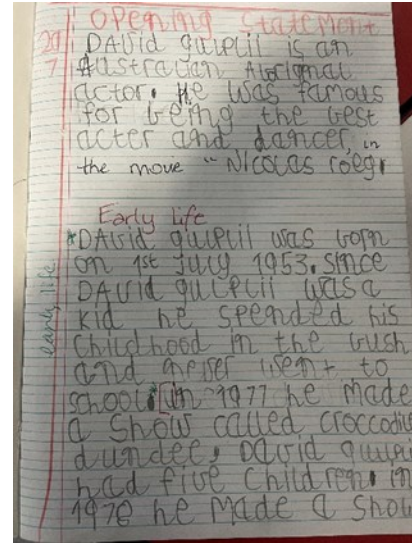 Opening Statement
29 DAVid gulpili is an
7 Australian Aborignal
actor. He was famous
for being the best
acter and dancer, in
the move "Nicolas roeg.
Early life
*DAVid gulpili was born
on 1st July 1953. since
DAVid gulpili was a
kid he spended his
childhood in the bush
and went to
school in 1977 he made
a show called croccodile
dundee. DAvid gulpili
had five children. in
1976 he made a show
early life